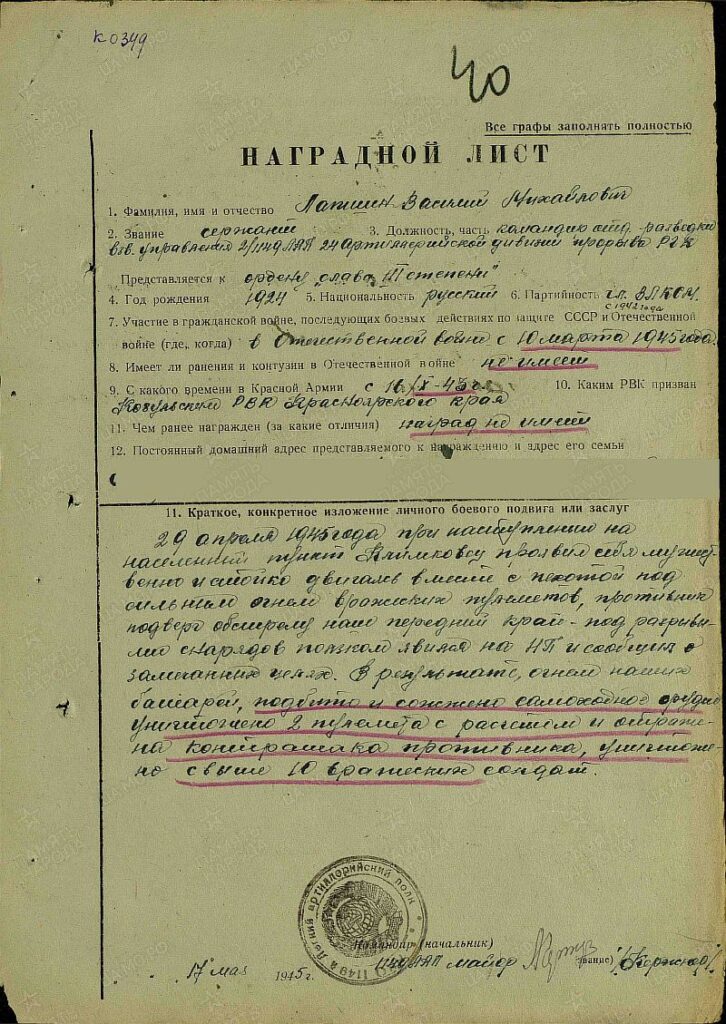 к 0349
40
Все графы заполнять полностью
НАГРАДНОЙ ЛИСТ
1. Фамилия, имя и отчество Лапшин Василий Михайлович
2. Звание сержант 3. Должность, часть командир отд. разведки
взв. управления 2/1149 ЛАП 24 Артиллерийской дивизии прорыва РГК
Представляется к ордену „Слава III степени"
4. Год рождения 1924 5. Национальность русский 6. Партийность чл. ВЛКСМ
с 1942 года
7. Участие в гражданской войне, последующих боевых действиях по защите СССР и Отечественной
войне (где, когда) в Отечественной войне с 10 марта 1945 года
8. Имеет ли ранения и контузии в Отечественной войне не имеет
9. С какого времени в Красной Армии с 16/X-43 г. 10. Каким РВК призван
Козульским РВК Красноярского края
11. Чем ранее награжден (за какие отличия) наград не имеет
12. Постоянный домашний адрес представляемого к награждению и адрес его семьи
11. Краткое, конкретное изложение личного боевого подвига или заслуг
29 апреля 1945 года при наступлении на
населенный пункт Климковец проявил себя мужест-
венно и стойко двигаясь вместе с пехотой под
сильным огнем вражеских пулеметов, противник
подверг обстрелу наш передний край - под разрыва-
ми снарядов ползком явился на НП и сообщил о
замеченных целях. В результате, огнем наших
батарей, подбито и сожжено самоходное орудие
уничтожено 2 пулемета с расчетом и отраже-
на контратака противника, уничтоже-
но свыше 10 вражеских солдат.
1149 й Легкий артиллерийский полк
Командир (начальник)
1149 ЛАП майор (звание)
17 мая 1945 г.